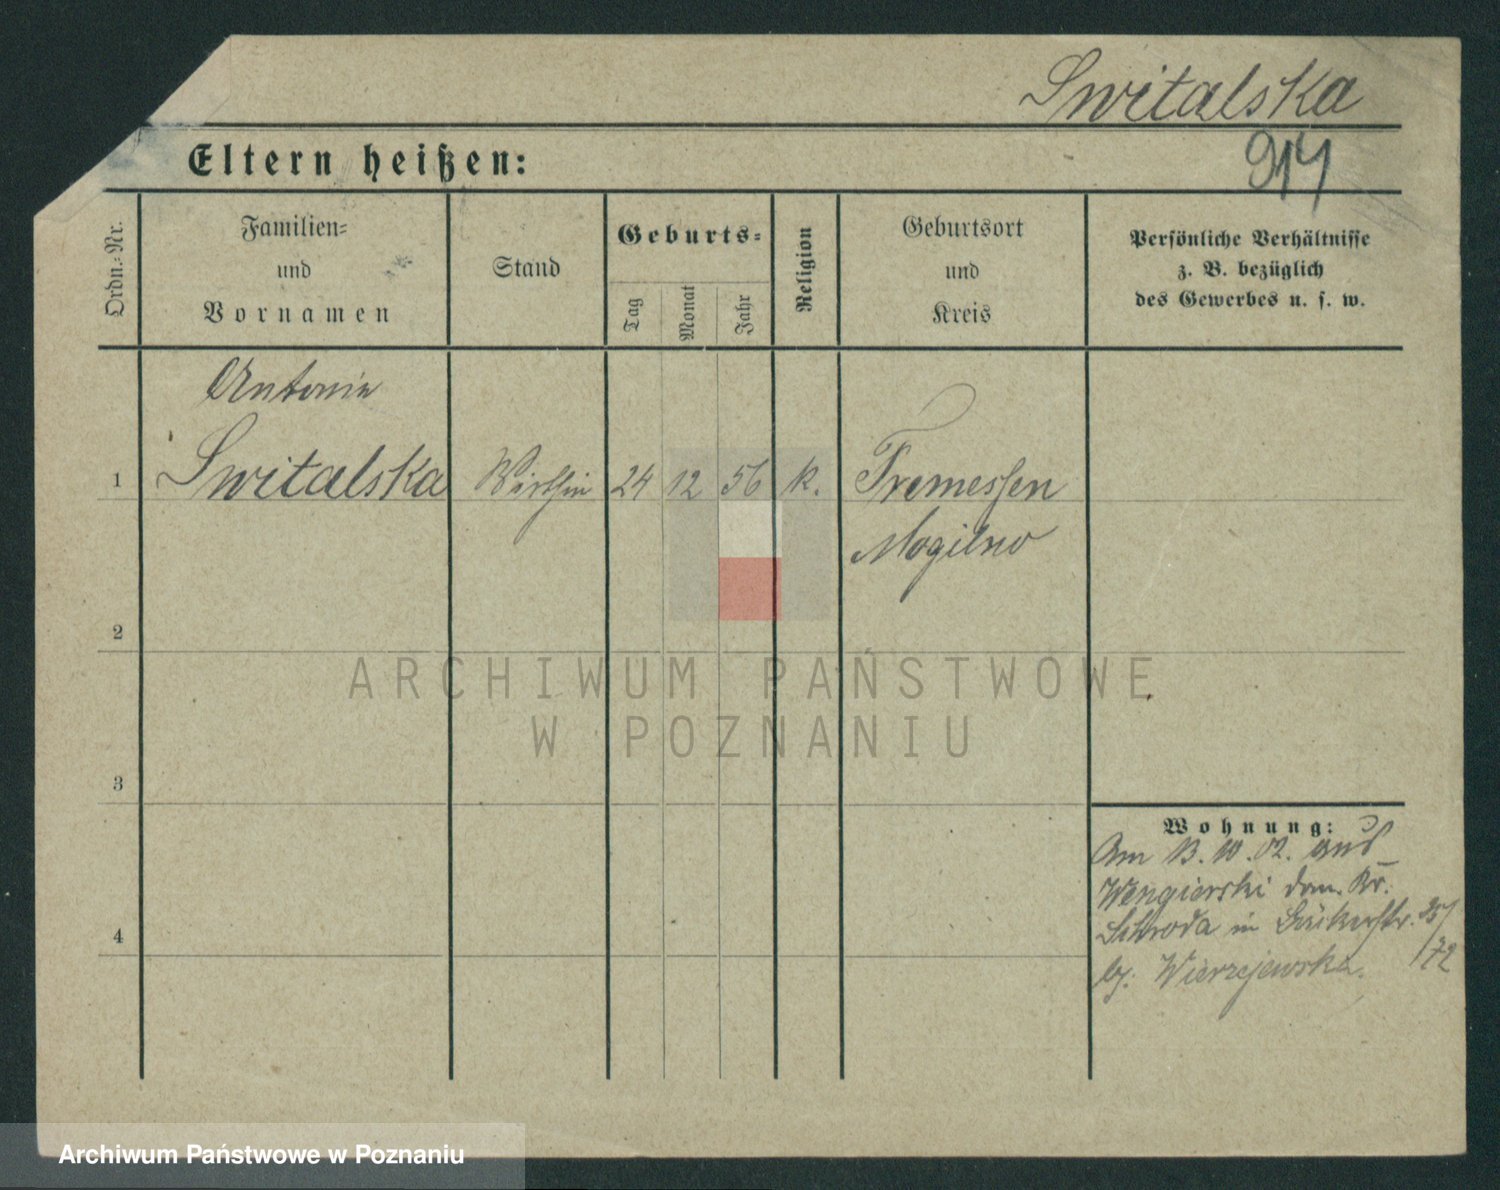 Switalska
914
Eltern heißen:
Ordn.-Nr.
Familien-
und
Vornamen
Stand
Geburts-
Tag
Monat
Jahr
Religion
Geburtsort
und
Kreis
Persönliche Verhältnisse
z. B. bezüglich
des Gewerbes u. s. w.
Antonie
1 Switalska Wirthin 24 12 56 k. Tremessen
Mogilno
2
3
4
ARCHIWUM PAŃSTWOWE
W POZNANIU
Wohnung:
Am 13. 10. 02. aus
Wengierski dom. Kr.
Schroda in Bäckerstr.
by. Wierzejewska.
Archiwum Państwowe w Poznaniu